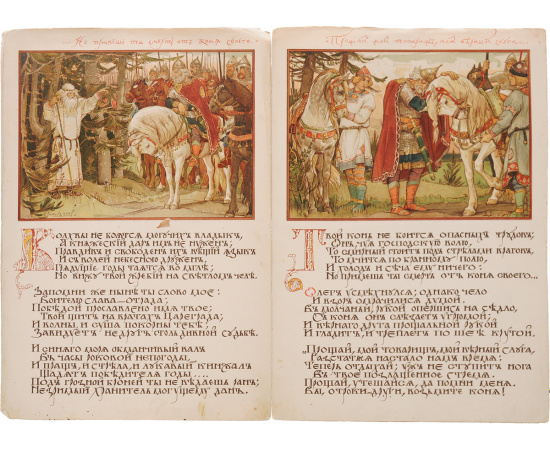 „Но примешь ты смерть отъ коня своего“.
Волхвы не боятся могучихъ владыкъ,
А княжескій даръ имъ не нуженъ;
Правдивъ и свободенъ ихъ вѣщій языкъ
И съ волей небесною друженъ.
Грядущіе годы таятся во мглѣ;
Но вижу твой жребій на свѣтломъ челѣ.
Запомни же нынѣ ты слово мое:
Воителю слава — отрада;
Побѣдой прославлено имя твое;
Твой щитъ на вратахъ Цареграда;
И волны, и суша покорны тебѣ;
Завидуетъ недругъ столь дивной судьбѣ.
И синяго моря обманчивый валъ
Въ часы роковой непогоды,
И пращъ, и стрѣла, и лукавый кинжалъ
Щадятъ побѣдителя годы....
Подъ грозной броней ты не вѣдаешь ранъ;
Незримый хранитель могущему данъ.
„Прощай, мой товарищъ, мой вѣрный слуга„
Твой конь не боится опасныхъ трудовъ;
Онъ, чуя господскую волю,
То смирный стоитъ подъ стрѣлами враговъ,
То мчится по бранному полю,
И холодъ и сѣча ему ничего:
Но примешь ты смерть отъ коня своего...„
Олегъ усмѣхнулся; однако чело
И взоръ омрачилися думой.
Въ молчаньи, рукой опершись на сѣдло,
Съ коня онъ слѣзаетъ угрюмой;
И вѣрнаго друга прощальной рукой
И гладитъ, и треплетъ по шеѣ крутой.
„Прощай, мой товарищъ, мой вѣрный слуга,
Разстаться настало намъ время:
Теперь отдыхай; ужъ не ступитъ нога
Въ твое позлащенное стремя.
Прощай, утѣшайся, да помни меня.
Вы, отроки-други, возьмите коня!